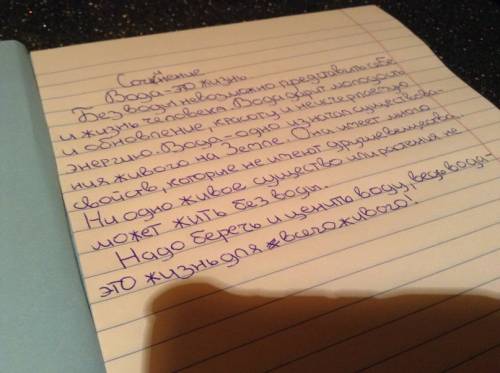 Сочинение
Вода-это жизнь
Без воды невозможно представить себе
и жизнь человека. Вода дарит молодость
и обновление, красоту и неисчерпаемую
энергию. Вода-одно из начал существова-
ния живого на Земле. Она имеет много
свойств, которые не имеют другие вещества.
Ни одно живое существо или растения не
может жить без воды.
Надо беречь и ценить воду, ведь вода-
это жизнь для всего живого!